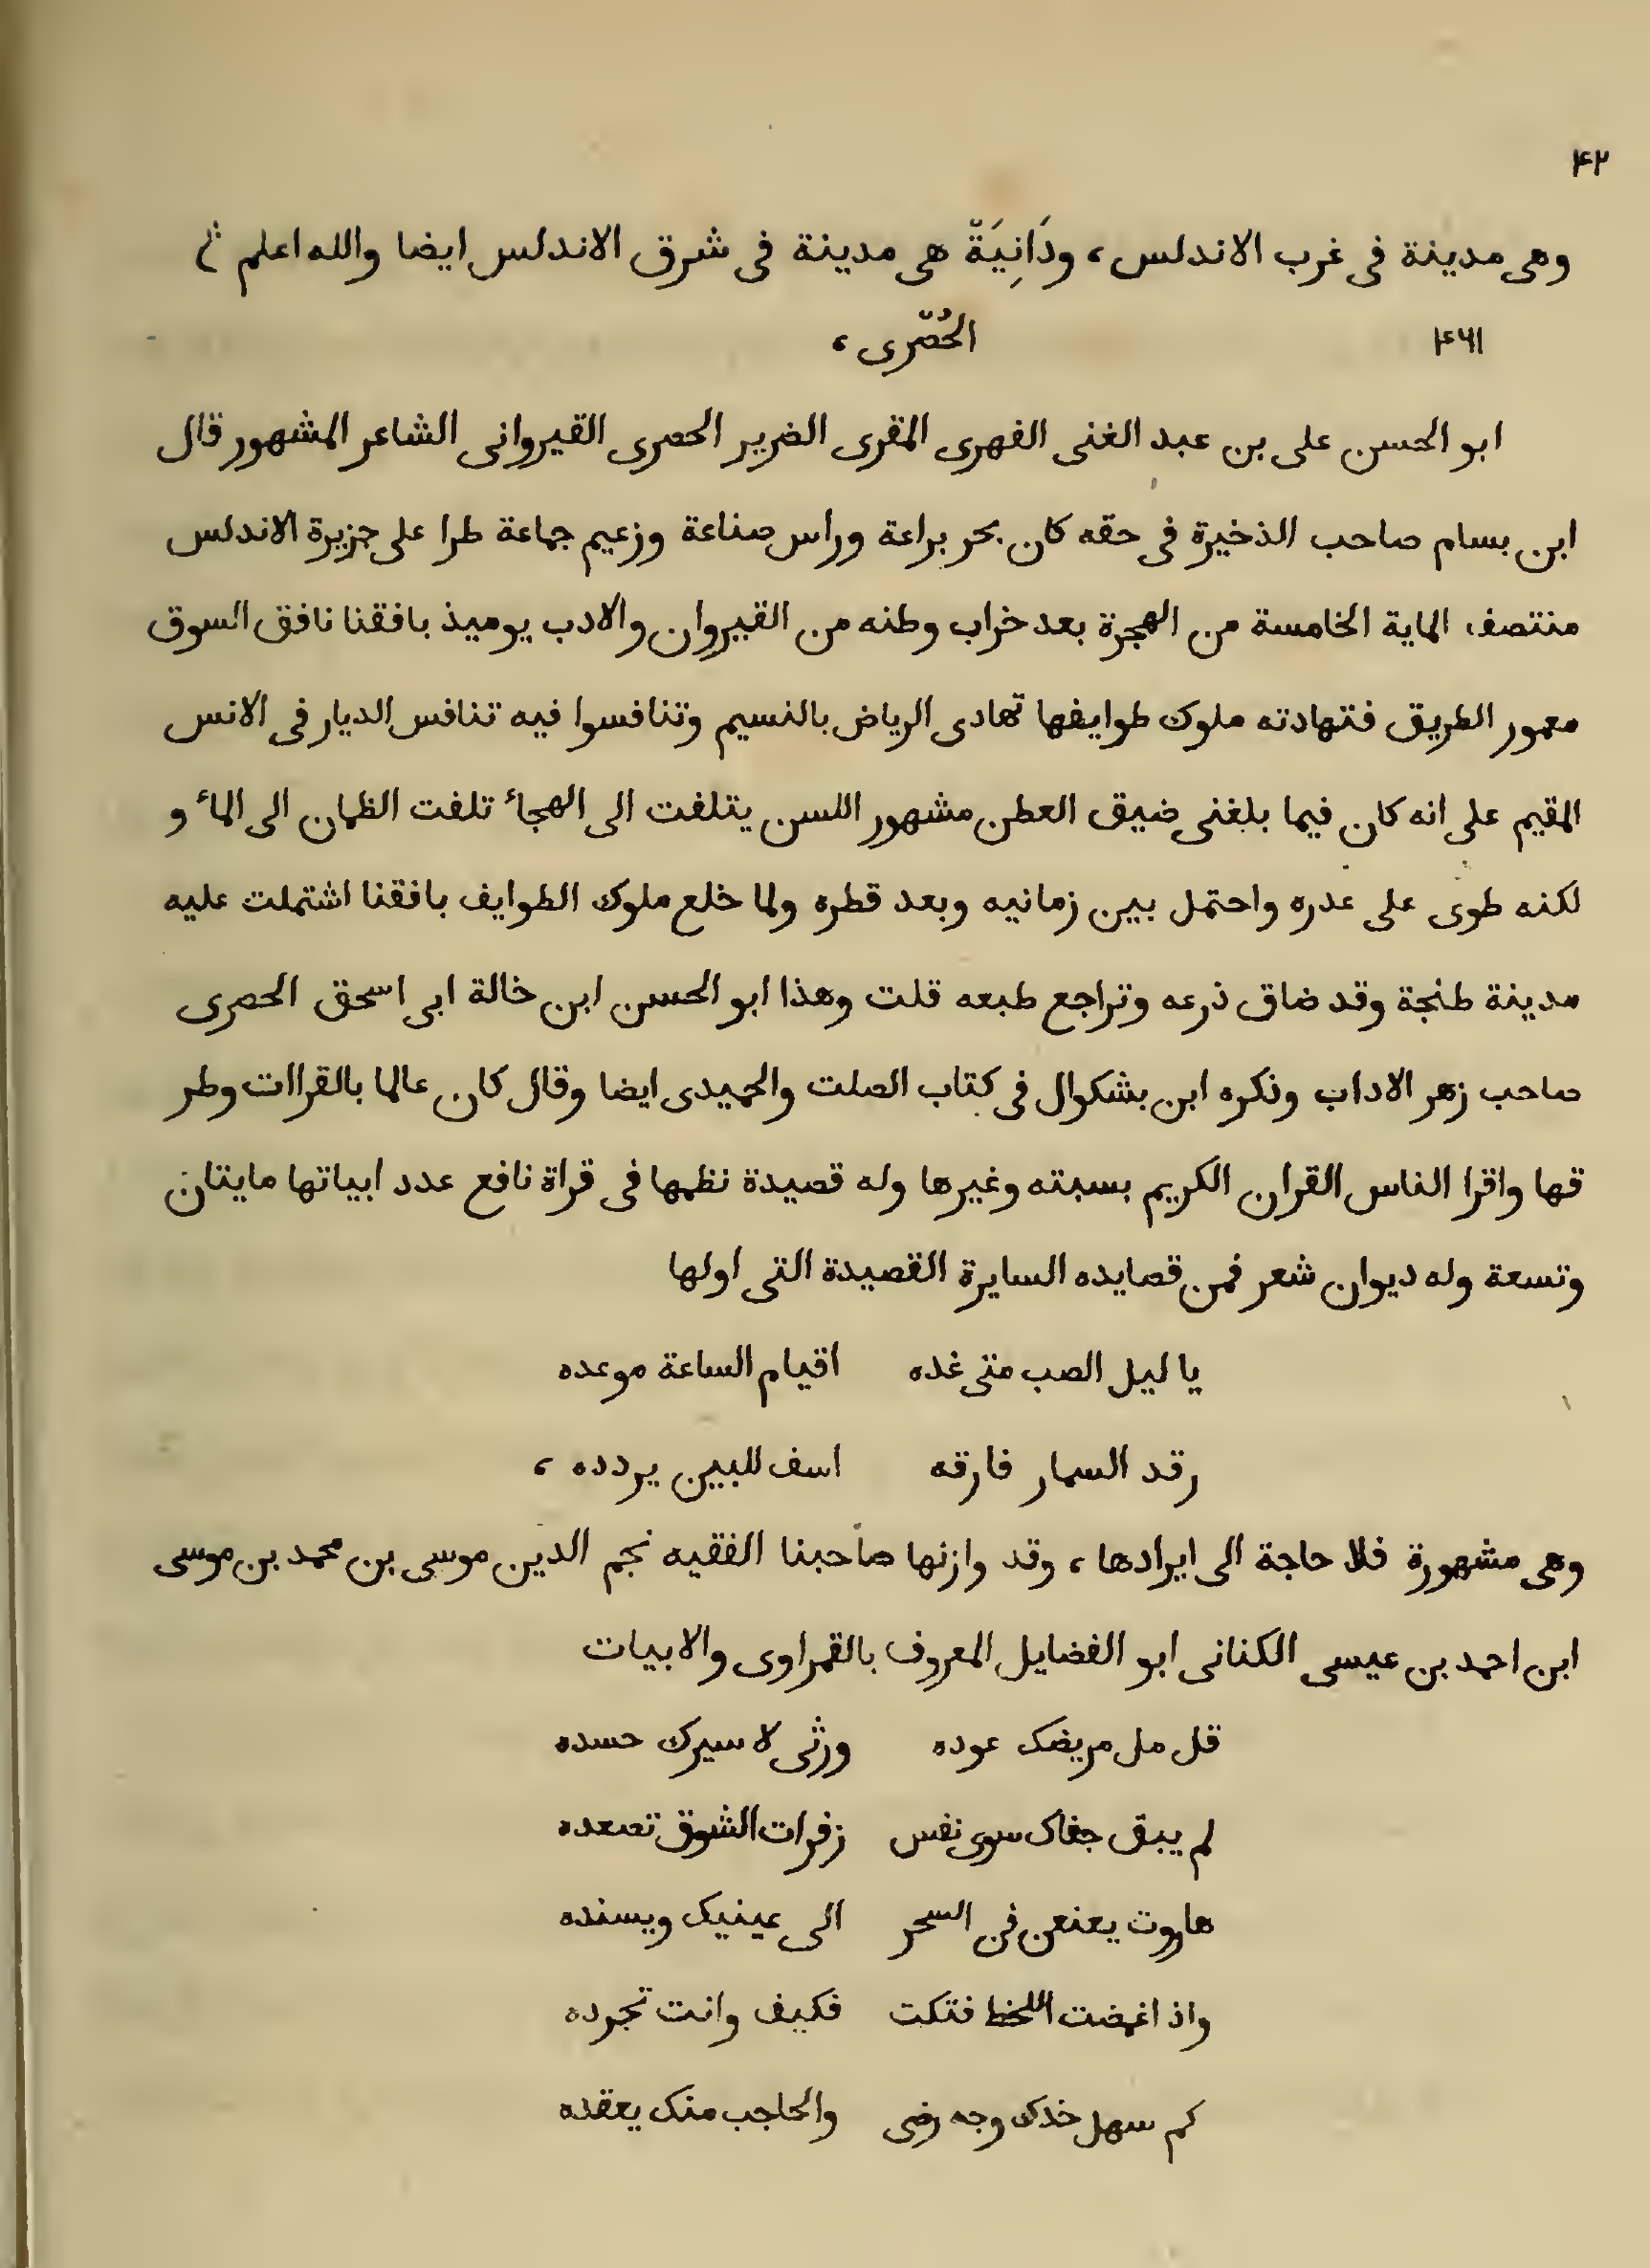 ۴۲
وهى مدينة فى غرب الاندلس، ودَانِيَةٌ هى مدينة فى شرق الاندلس ايضا والله اعلم
۴۶۱ الحُصْرى،
ابو الحسن على بن عبد الغنى الفهرى المقرى الضرير الحصرى القيروانى الشاعر المشهور قال
ابن بسام صاحب الذخيرة فى حقه كان بحر براعة وراس صناعة وزعيم جماعة طرا على جزيرة الاندلس
منتصف الماية الخامسة من الهجرة بعد خراب وطنه من القيروان والادب يوميذ بافقنا نافق السوق
معمور الطريق فتهادته ملوك طوايفها تهادى الرياض بالنسيم وتنافسوا فيه تنافس الديار فى الانس
المقيم على انه كان فيما بلغنى ضيق العطن مشهور اللسن يتلفت الى الهجائ تلفت الظمان الى المائ و
لكنه طوى على عدره واحتمل بين زمانيه وبعد قطره ولما خلع ملوك الطوايف بافقنا اشتملت عليه
مدينة طنجة وقد ضاق ذرعه وتراجع طبعه قلت وهذا ابو الحسن ابن خالة ابى اسحق الحصرى
صاحب زهر الاداب وذكره ابن بشكوال فى كتاب الصلت والحميدى ايضا وقال كان عالما بالقراات وطر
قها واقرا الناس القران الكريم بسبته وغيرها وله قصيدة نظمها فى قراة نافع عدد ابياتها مايتان
وتسعة وله ديوان شعر فمن قصايده السايرة القصيدة التى اولها
يا ليل الصب متى غده اقيام الساعة موعده
رقد السمار فارقه اسف للبين يردده،
وهى مشهورة فلا حاجة الى ايرادها، وقد وازنها صاحبنا الفقيه نجم الدين موسى بن محمد بن موسى
ابن احمد بن عيسى الكنانى ابو الفضايل المعروف بالقمراوى والابيات
قل مل مريضك عوده ورثى لاسيرك حسده
لم يبق جفاك سوى نفس زفرات الشوق تصعده
هاروت يعنعن فن السحر الى عينيك ويسنده
واذ اغمضت اللحظ فتكت فكيف وانت تجرده
كم سهل خدك وجه رضى والحاجب منك يعقده